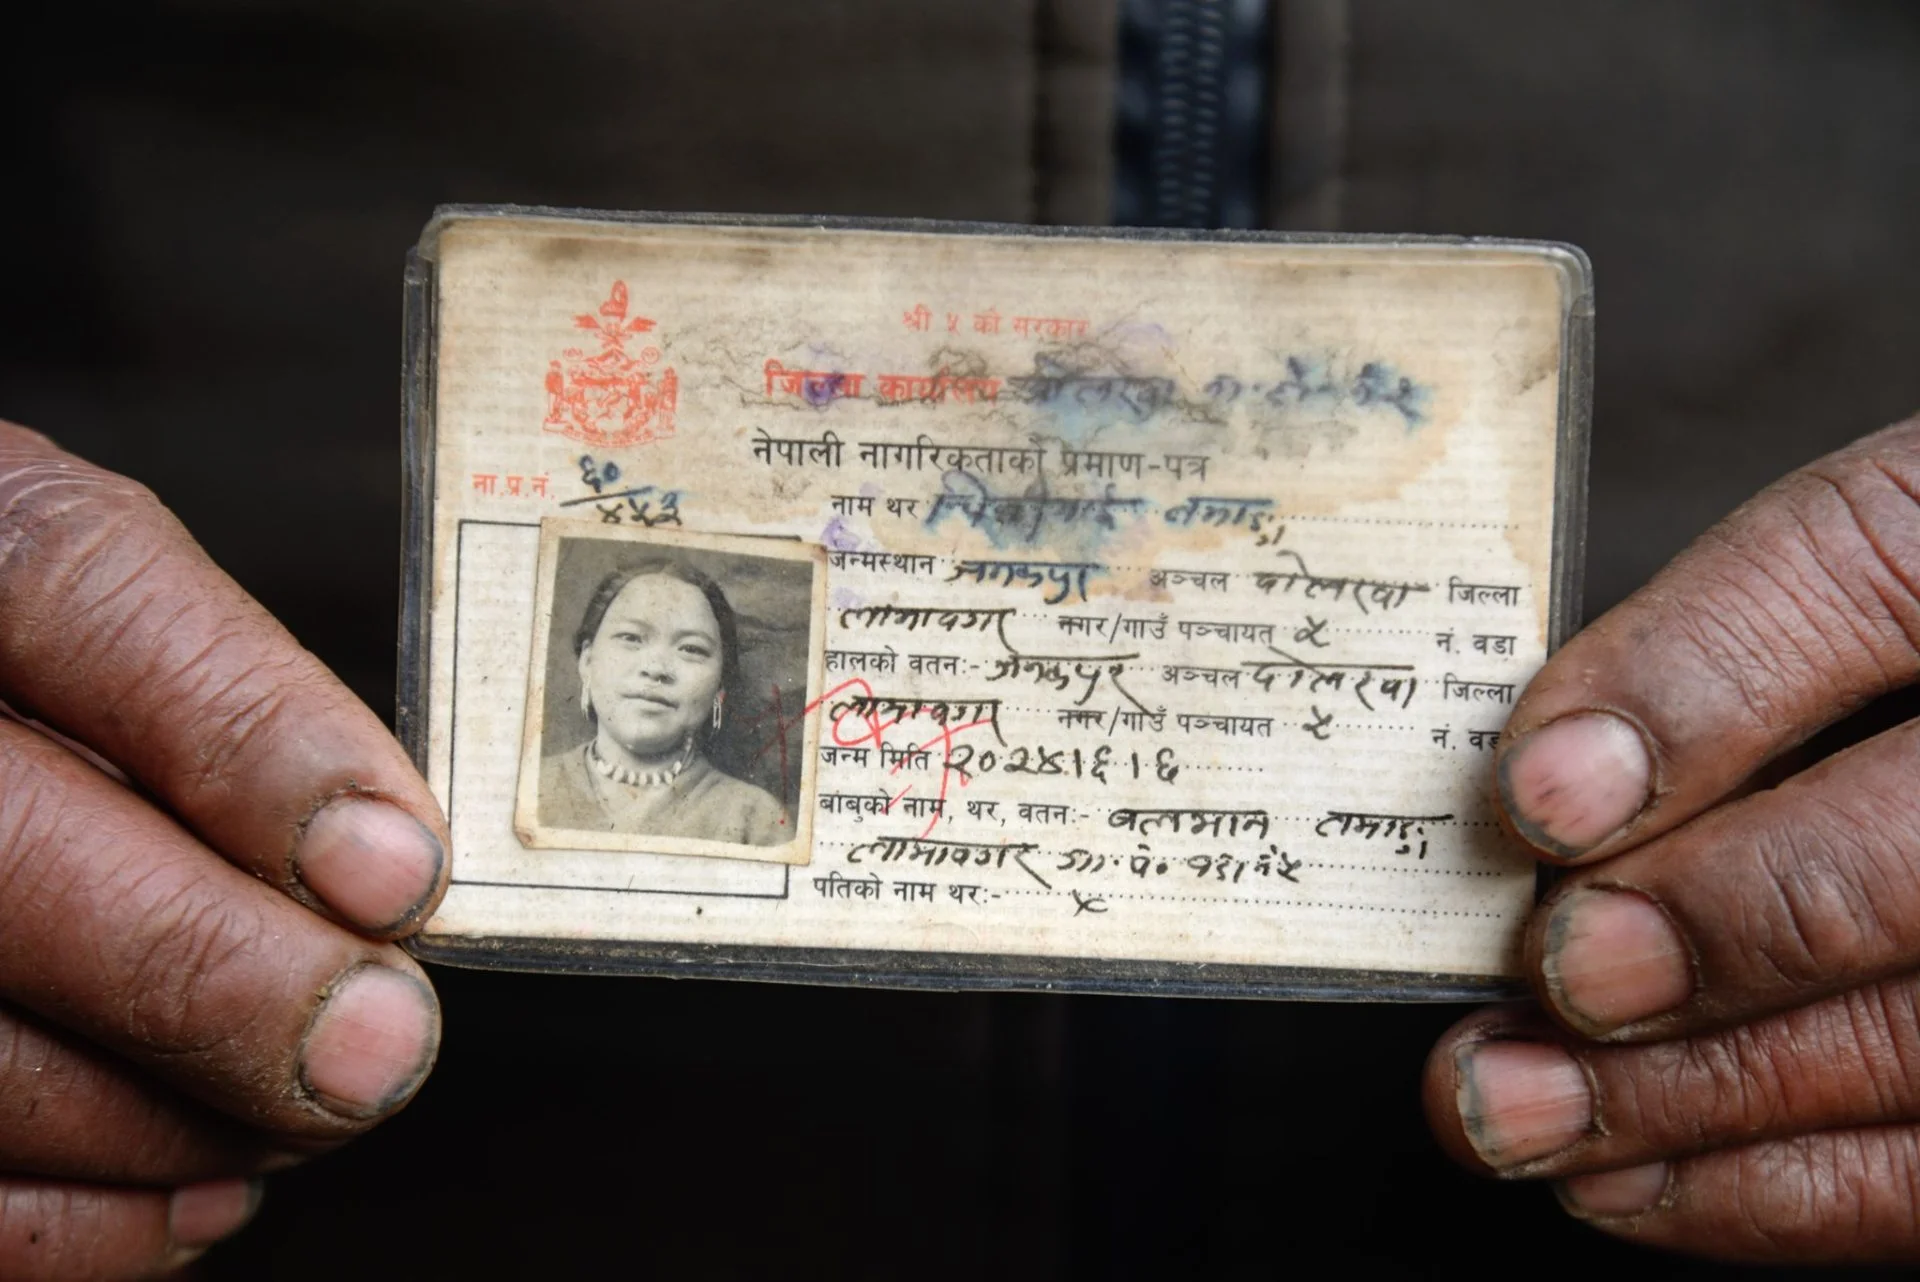 श्री ५ को सरकार
जिल्ला कार्यालय दोलखा
नेपाली नागरिकताको प्रमाण-पत्र
ना.प्र.नं. ६०/४५३
नाम थर तामाङ
जन्मस्थान जनकपुर अञ्चल दोलखा जिल्ला
लामावगर नगर/गाउँ पञ्चायत ५ नं. वडा
हालको वतनः- जनकपुर अञ्चल दोलखा जिल्ला
लामावगर नगर/गाउँ पञ्चायत ५ नं. वडा
जन्म मिति २०२४।६।६
बाबुको नाम, थर, वतनः- तामाङ
लामावगर गा.पं. वडा नं ५
पतिको नाम थरः- ×